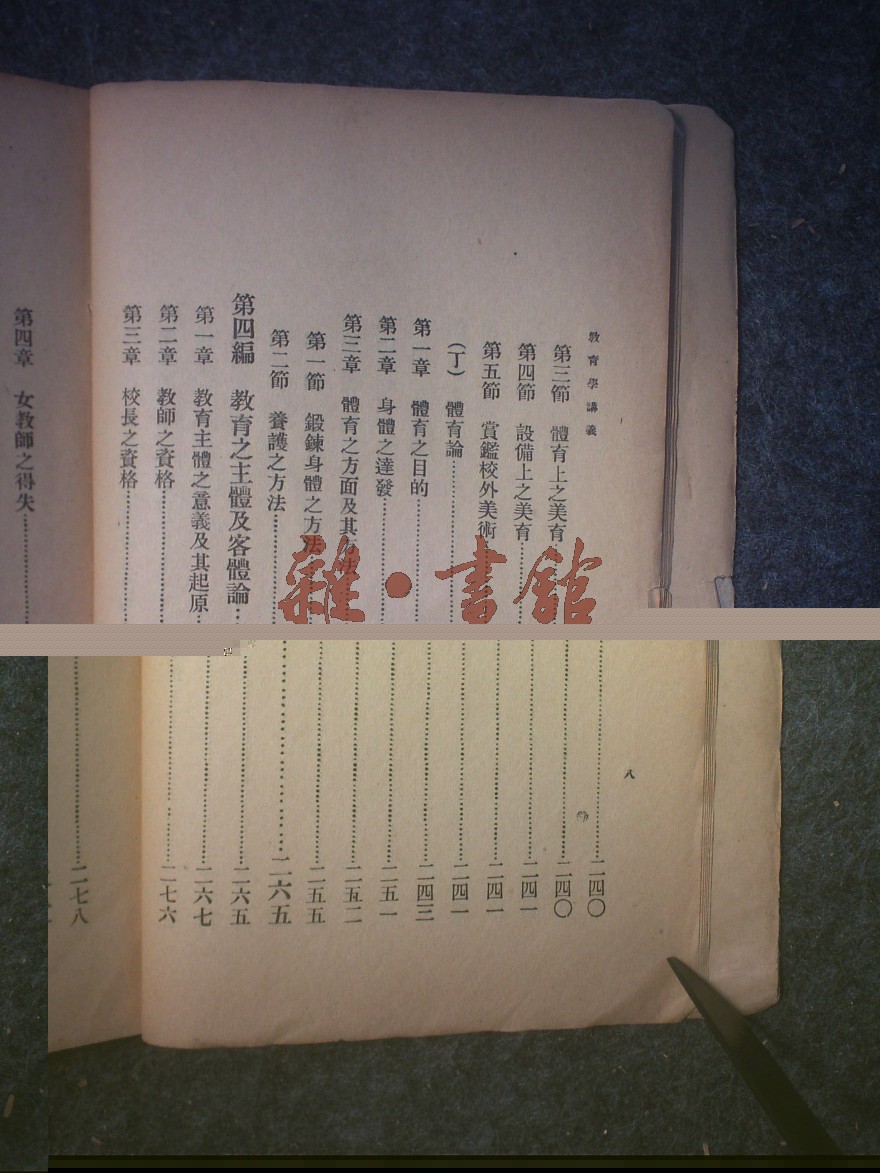 教育學講義　八
第三節　體育上之美育……二四〇
第四節　設備上之美育……二四〇
第五節　賞鑑校外美術……二四一
(丁)　體育論……二四一
第一章　體育之目的……二四一
第二章　身體之達發……二四三
第三章　體育之方面及其方法……二五一
第一節　鍛鍊身體之方法……二五二
第二節　養護之方法……二五五
第四編　教育之主體及客體論……二六五
第一章　教育主體之意義及其起原……二六五
第二章　教師之資格……二六七
第三章　校長之資格……二七六
第四章　女教師之得失……二七八
雜·書館